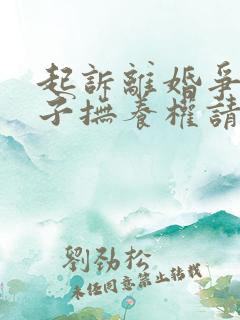 起訴離婚爭
子撫養權請
劉勁松
未經同意禁止轉載